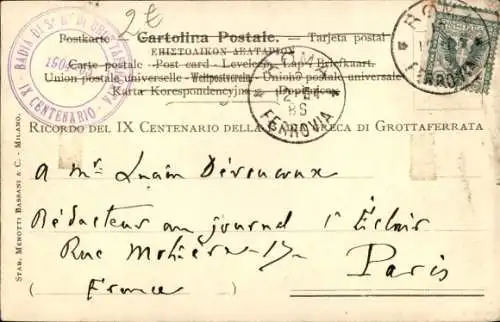 2€
Postkarte Cartolina Postale. - Tarjeta postal
ΕΠΙΣΤΟΛΙΚΟΝ ΔΕΛΤΑΡΙΟΝ
Carte postale - Post card - Levelező Lap - Briefkaart
Union postale universelle - Weltpostverein - Unione postale universale
Karta Korespondencyjna - Dopisnice
BADIA DI GROTTAFERRATA
IX CENTENARIO
ROMA
FERROVIA
FERROVIA
RICORDO DEL IX CENTENARIO DELLA BADIA GRECA DI GROTTAFERRATA
STAB. MENOTTI BASSANI & C. - MILANO.
A Mr Luain
Rédacteur au journal l'Éclair
Rue 17
Paris
(France)